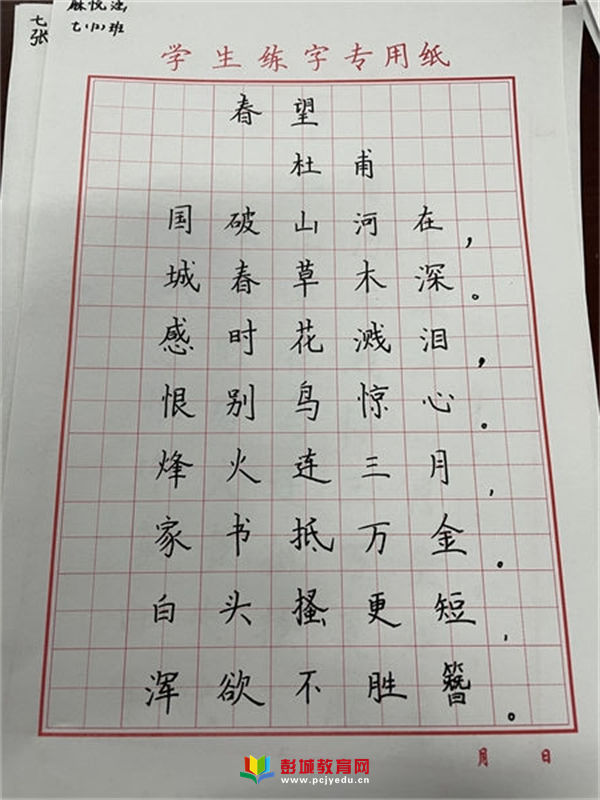 七(12)班
七
张
学生练字专用纸
春望
杜甫
国破山河在，
城春草木深。
感时花溅泪，
恨别鸟惊心。
烽火连三月，
家书抵万金。
白头搔更短，
浑欲不胜簪。
月 日
彭城教育网
www.pcjyedu.cn